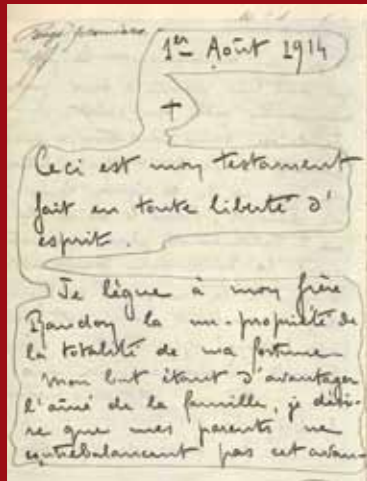 Page première
1er Août 1914
+
Ceci est mon testament
fait en toute liberté d'
esprit.
Je lègue à mon frère
Baudoy la nu-propriété de
la totalité de ma fortune
mon but étant d'avantager
l'aîné de la famille, je dési-
re que mes parents ne
contrebalancent pas cet avan-